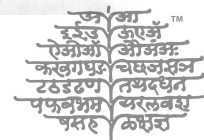 अ आ
™
इ ई उ ऊ ए ऍ
ऐ ओ ऑ औ अं अः
क ख ग घ ङ च छ ज झ ञ
ट ठ ड ढ ण त थ द ध न
प फ ब भ म य र ल व श
ष स ह ळ क्ष ज्ञ